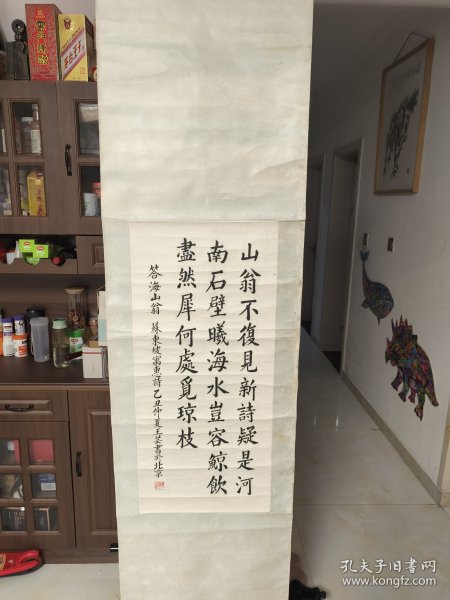 山翁不復見新詩疑是河
南石壁曦海水豈容鯨飲
盡然犀何處覓瓊枝
答海山翁 蘇東坡寓惠詩 乙丑仲夏王英書於北京
孔夫子旧书网
www.kongfz.com